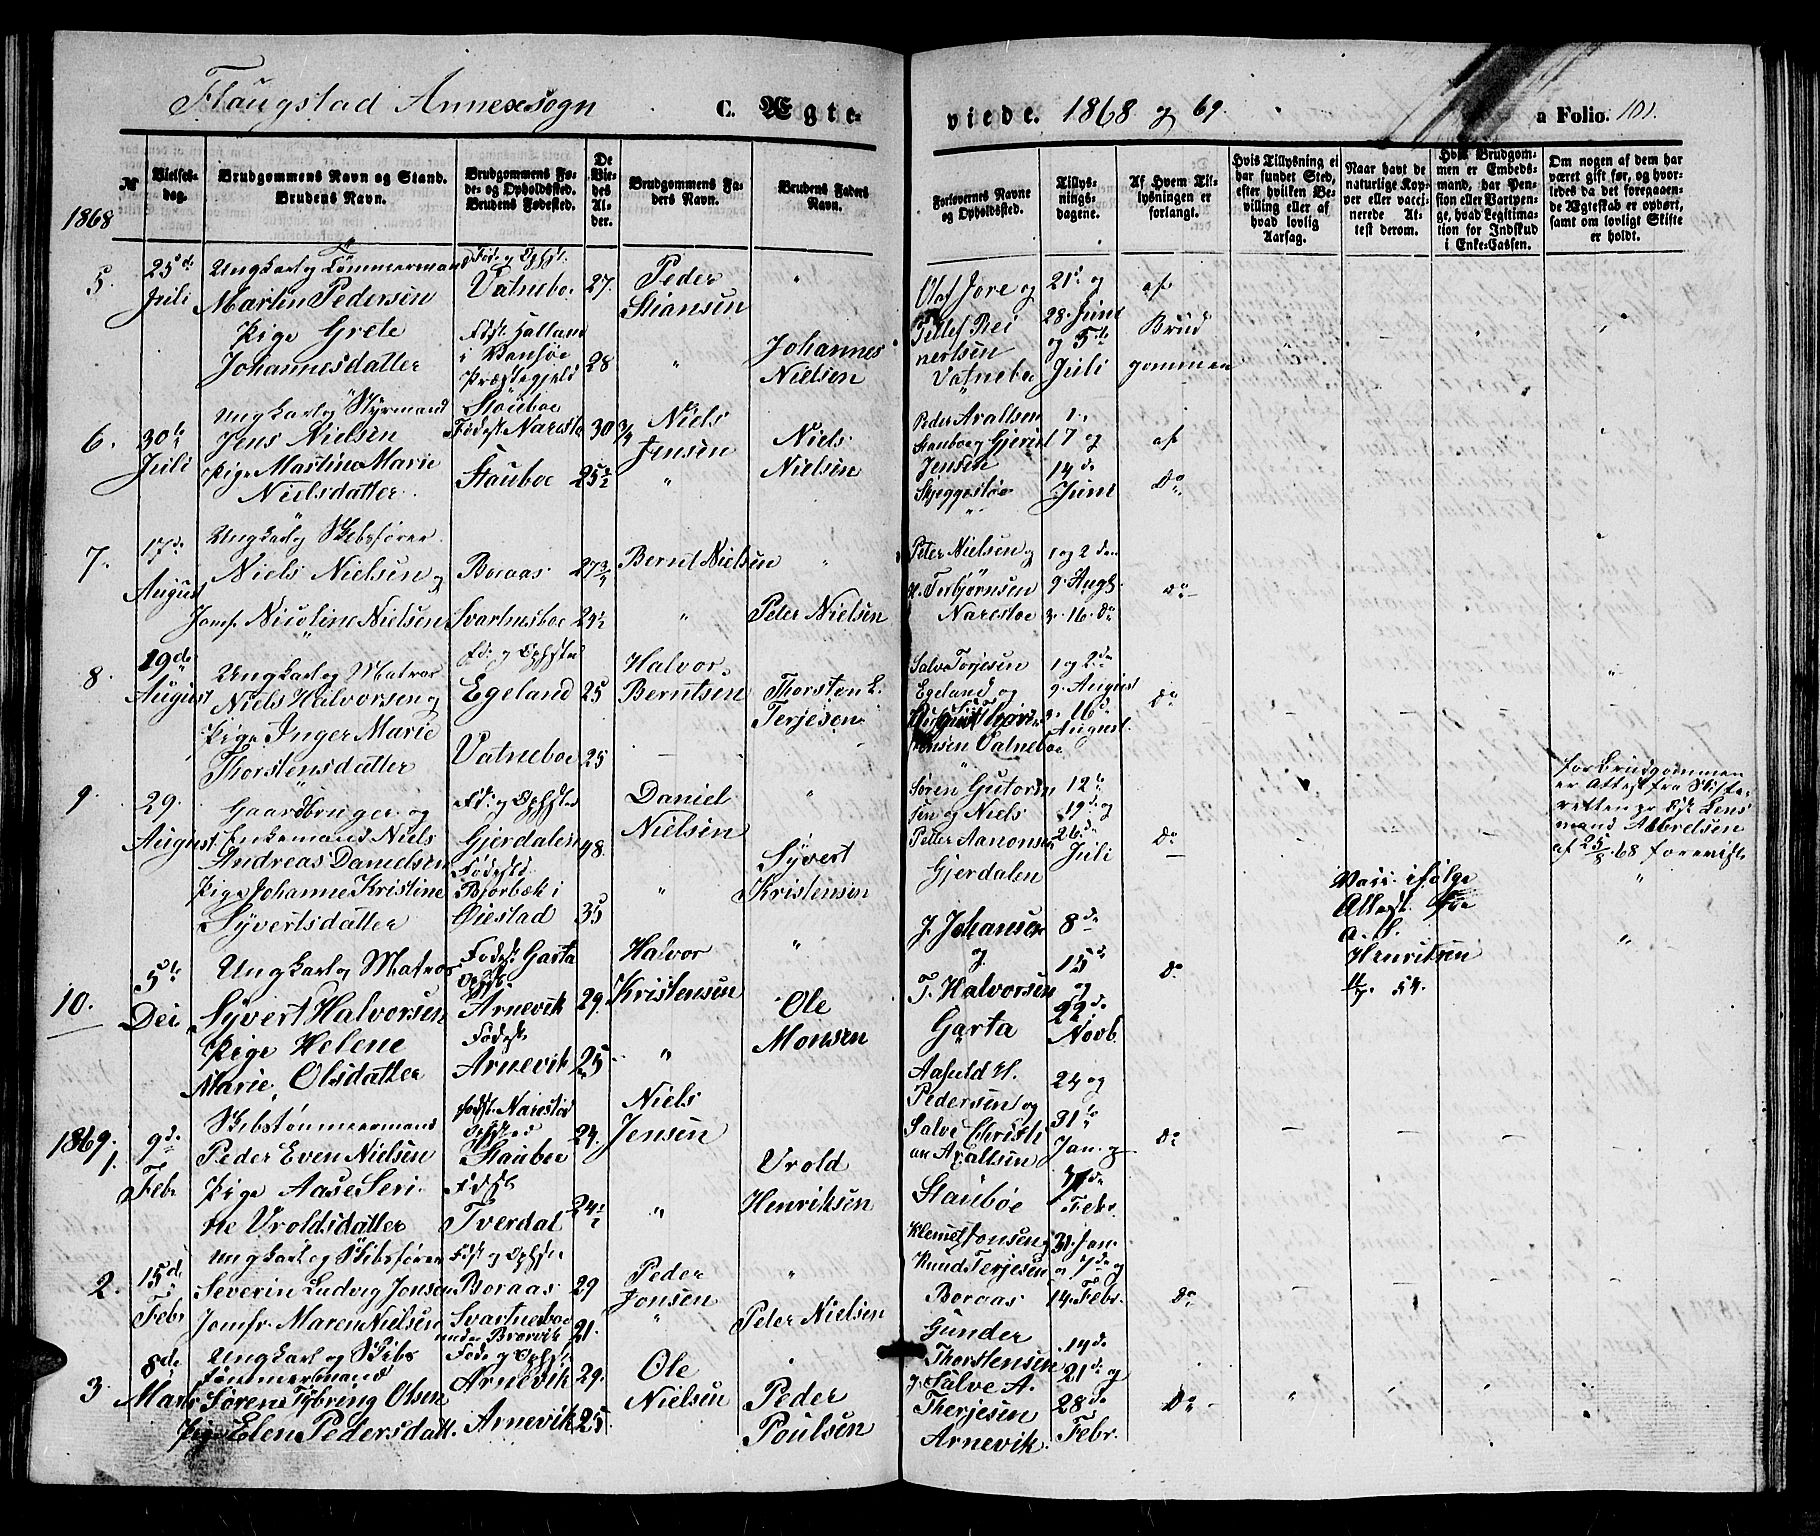 Flaugstad Annexsogn C. Ægte-
viede. 1868 og 69. a Folio. 101.
№
Vielses-
dag.
Brudgommens Navn og Stand.
Brudens Navn.
Brudgommens Fø-
de- og Opholdssted.
Brudens Fødested.
De
Vie-
des
Al-
der.
Brudgommens Fa-
ders Navn.
Brudens Faders
Navn.
Forlovernes Navne
og Opholdssted.
Tillys-
nings-
dagene.
Af Hvem Til-
lysningen er
forlangt.
Hvis Tillysning ei
har fundet Sted,
efter hvilken Be-
villing eller af
hvad lovlig
Aarsag.
Naar havt de
naturlige Kop-
per eller vacci-
nerede At-
test derom.
Hvis Brudgom-
men er Embeds-
mand, har Pen-
sion eller Vartpen-
ge, hvad Legitima-
tion for Indskud
i Enke-Cassen.
Om nogen af dem har
været gift før, og hvor-
ledes da det foregaaen-
de Ægteskab er ophørt,
samt om lovligt Skifte
er holdt.
1868
5.
25de
Juli
Ungkarl og Tømmermand
Martin Pedersen
Pige Grete
Johannesdatter
Føde og Ophst.
Vatneboe
Fødst. Halland
i Vansøe
Præstegjeld
27.
28
Peder
Stiansen
"
"
Johannes
Nielsen
Olaf Jore og
Tellef Rei
nertsen
Vatneboe
21de og
28 Juni
og 5te
Juli
af
Brud
gommen
6.
30te
Juli
Ungkarl og Styrmand
Jens Nielsen
Pige Martine Marie
Nielsdatter
Stauboe
Fødest. Narestø
Stauboe
30 3/4
25 1/2
Niels
Jensen
"
Niels
Nielsen
Peder Axaltsen
Stauboe og Gjerul
Jensen
Skjeggestøe
1.
7 og
14de
Juni
af
Do
7.
17de
August
Ungkarl og Skibsfører
Niels Nielsen og
Jomf. Nicoline Nielsen
Boraas
Svartnesboe
27 3/4
24 1/2
Bernt Nielsen
"
"
Peter Nielsen
Peter Nielsen og
H. Terbjørnsen
Narestøe
1 og 2den
9. August
3. 16. Do
Do
8.
19de
August
Ungkarl og Matros
Niels Halvorsen og
Pige Inger Marie
Thorstensdatter
Fde. og Ophsted
Egeland
Vatneboe
25
25
Halvor
Berntsen
Thorsten L.
Terjesen
Salve Torjesen
Egeland og
Vatneboe
1 og 2de
9. August
3. 16de
August.
Do
9.
29.
August
Gaardbruger og
Enkemand Niels
Andreas Danielsen
Pige Johanne Kristine
Syvertsdatter
Fde. og Ophsted
Gjerdalen
Fødested
Bjorbæk i
Øiestad
48.
35
Daniel
Nielsen
"
"
Syvert
Kristensen
Søren Gutorm
sen og Niels
Petter Aanonsen
Gjerdalen
12te
19de og
26de
Juli
Do
for Brudgommen
er Attest fra Skifte-
retten
mand Albretsen
af 25/8. 68 forevist
10.
5te
Dec.
Ungkarl og Matros
Syvert Halvorsen
Pige Helene
Marie Olsdatter
Fødest. Garta
Ophst.
Arnevik
Fødest.
Arnevik
29.
25
Halvor
Kristensen
"
"
Ole
Monsen
J. Johansen
og
T. Halvorsen
Garta
8de
15de
og
22de
Novb.
Do
Vacc. ifølge
Attest fra
A. H.
Henriksen
54.
1869.
1.
9de
Febr.
Skibstømmermand
Peder Even Nielsen
Pige Aase Seri-
ne Vroldsdatter
Fødst. Narestad
Ophsted
Stauboe
Fødst.
Tverdal
24.
24 1/2
Niels
Jensen
"
Vrold
Henriksen
Aafeld H.
Pedersen og
Salve Christi
an Axaltsen
Stauboe
24 og
31te
Jan. og
7de
Febr.
Do
2.
15de
Febr.
Ungkarl og Skibsfører
Severin Ludvig Jonsen
Jomfr. Maren Nielsen
Fødst. og Ophsted
Boraas
Svartnesboe
under Brorvik
29
21.
Peder
Jonsen
"
"
Peter Nielsen
Klemet Jonsen og
Knud Terjesen
Boraas
31. Jan.
7de og
14. Febr.
Do
3.
8de
Marts
Ungkarl og Skibs
tømmermand
Søren Tybring Olsen
Pige Elen Pedersdatt.
Føde og Ophst.
Arnevik
Arnevik
29.
25
Ole
Nielsen
"
Peder
Poulsen
Gunder
Thorstensen
og Salve A.
Therjesen
Arnevik.
14de
21de og
28de
Febr.
Do